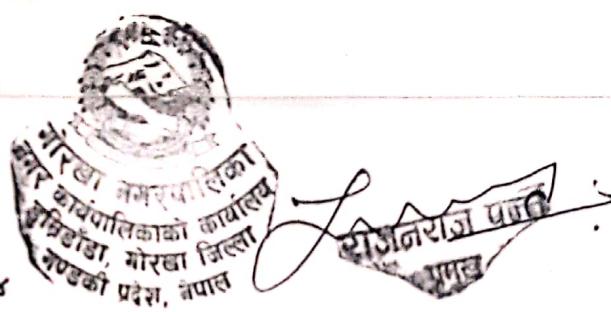 गोरखा नगरपालिका
नगर कार्यपालिकाको कार्यालय
गोरखा जिल्ला
गण्डकी प्रदेश, नेपाल
राजनराज पन्त
प्रमुख